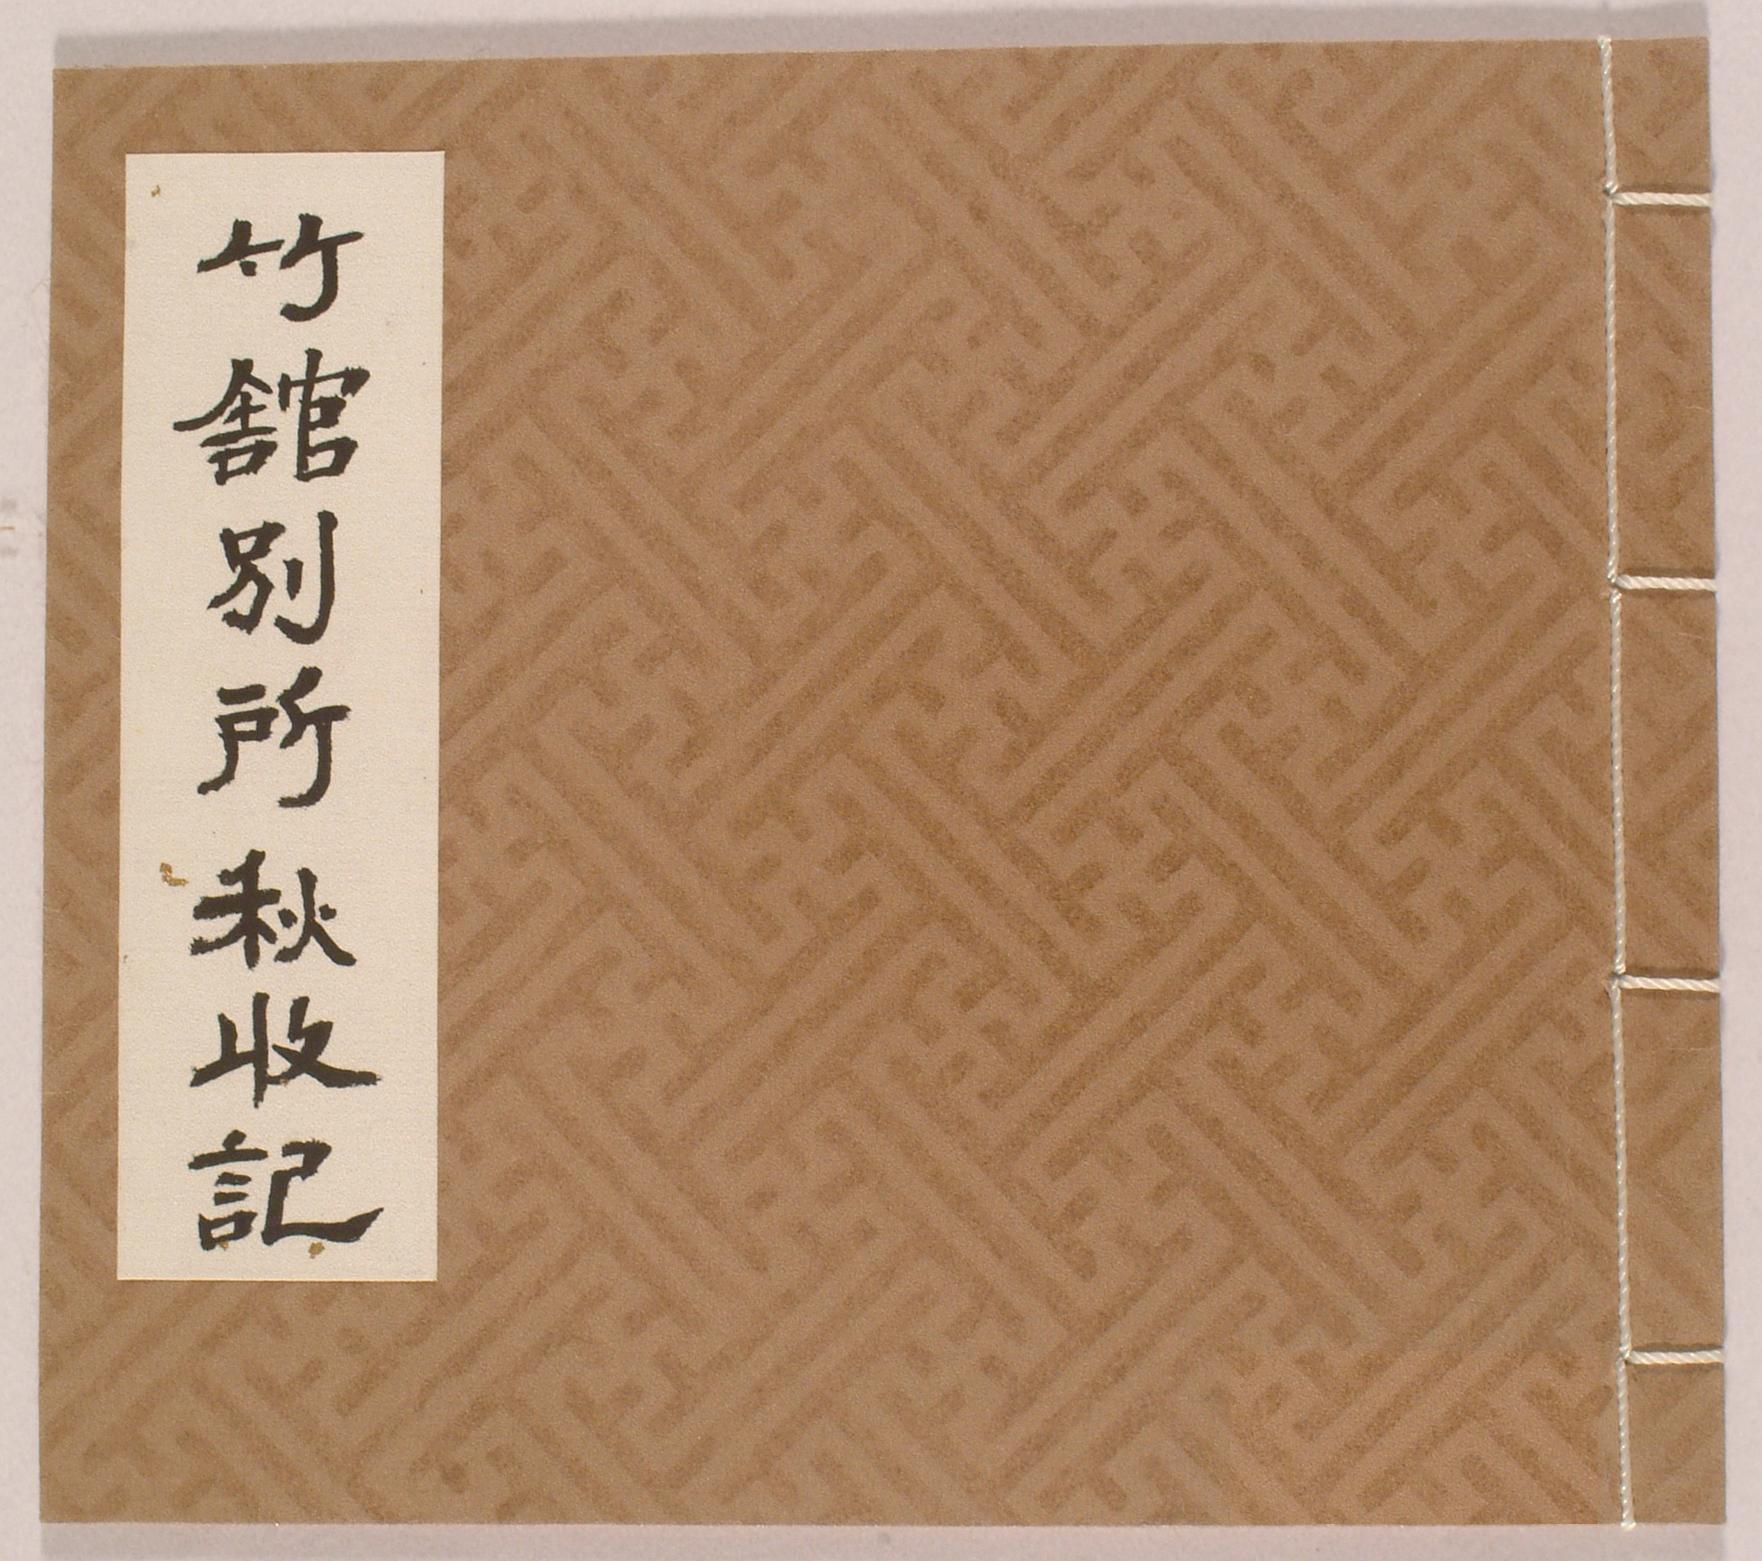 竹舘別所秋收記